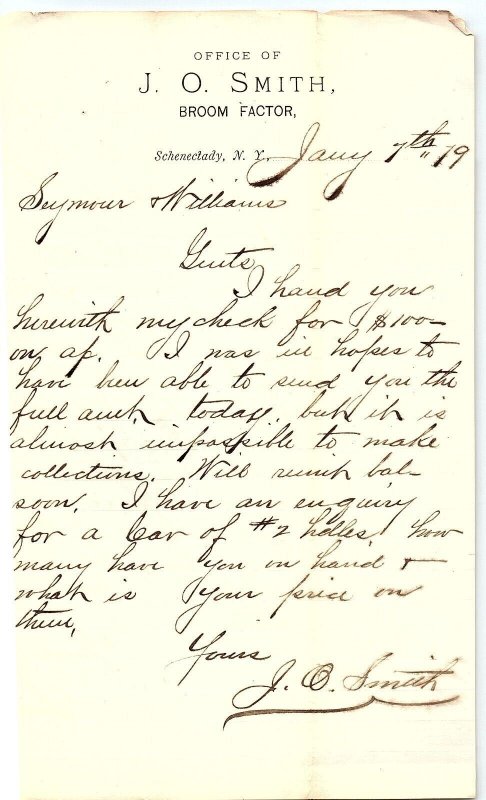 OFFICE OF
J. O. SMITH,
BROOM FACTOR,
Schenectady, N. Y., Jany 7th 79
Seymour & Williams
Gents
I hand you
herewith my check for $100-
on ac. I was in hopes to
have been able to send you the
full amt. today but it is
almost impossible to make
collections. Will remit bal-
soon. I have an enquiry
for a Car of #2 hdles. how
many have you on hand &
what is your price on
them,
Yours
J. O. Smith